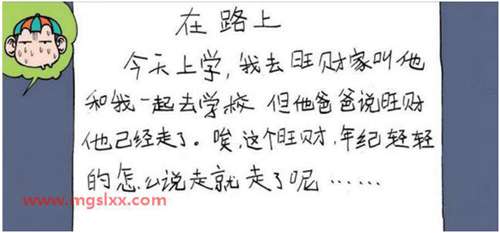 在路上
今天上学,我去旺财家叫他
和我一起去学校 但他爸爸说旺财
他已经走了。唉,这个旺财,年纪轻轻
的怎么说走就走了呢……
www.mgslxx.com